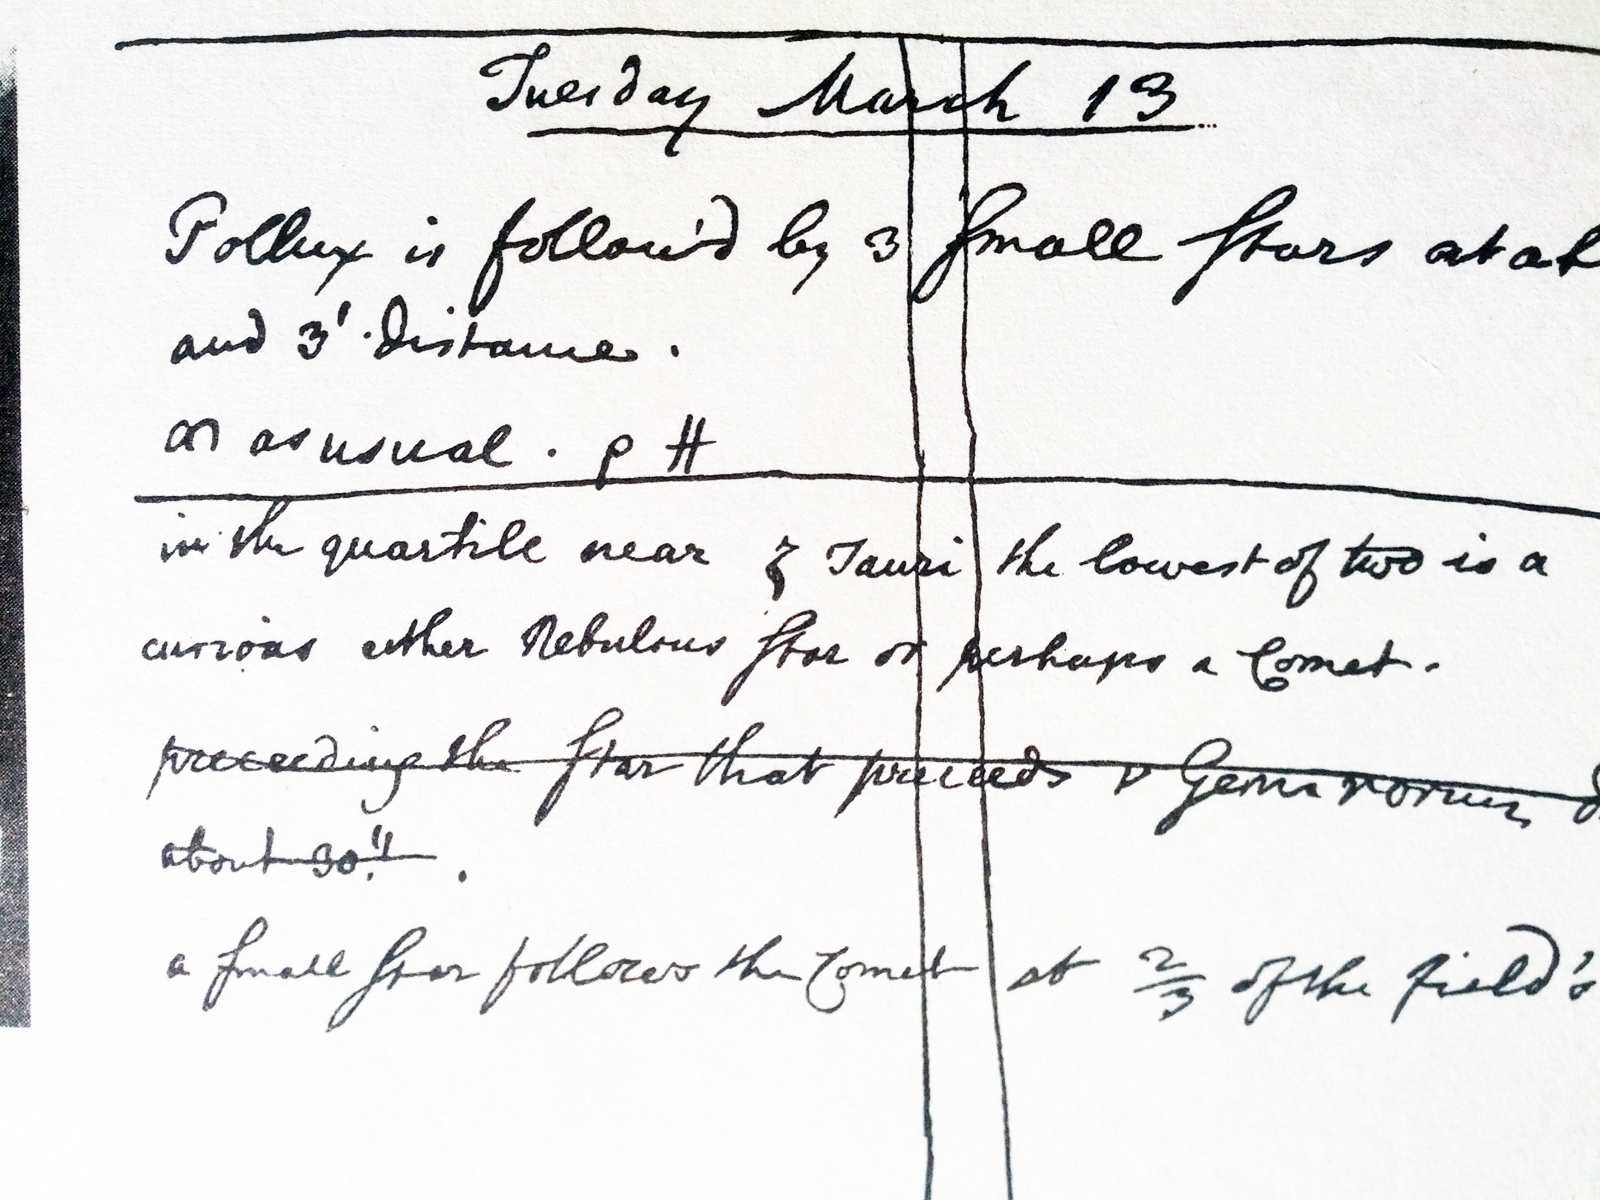 Tuesday March 13
Pollux is follow'd by 3 small stars at ab
and 3' distance.
as usual. p #
in the quartile near ζ Tauri the lowest of two is a
curious either Nebulous star or perhaps a Comet.
preceeding the star that preceeds ν Geminorum
about 30".
a small star follows the Comet at 2/3 of the field's